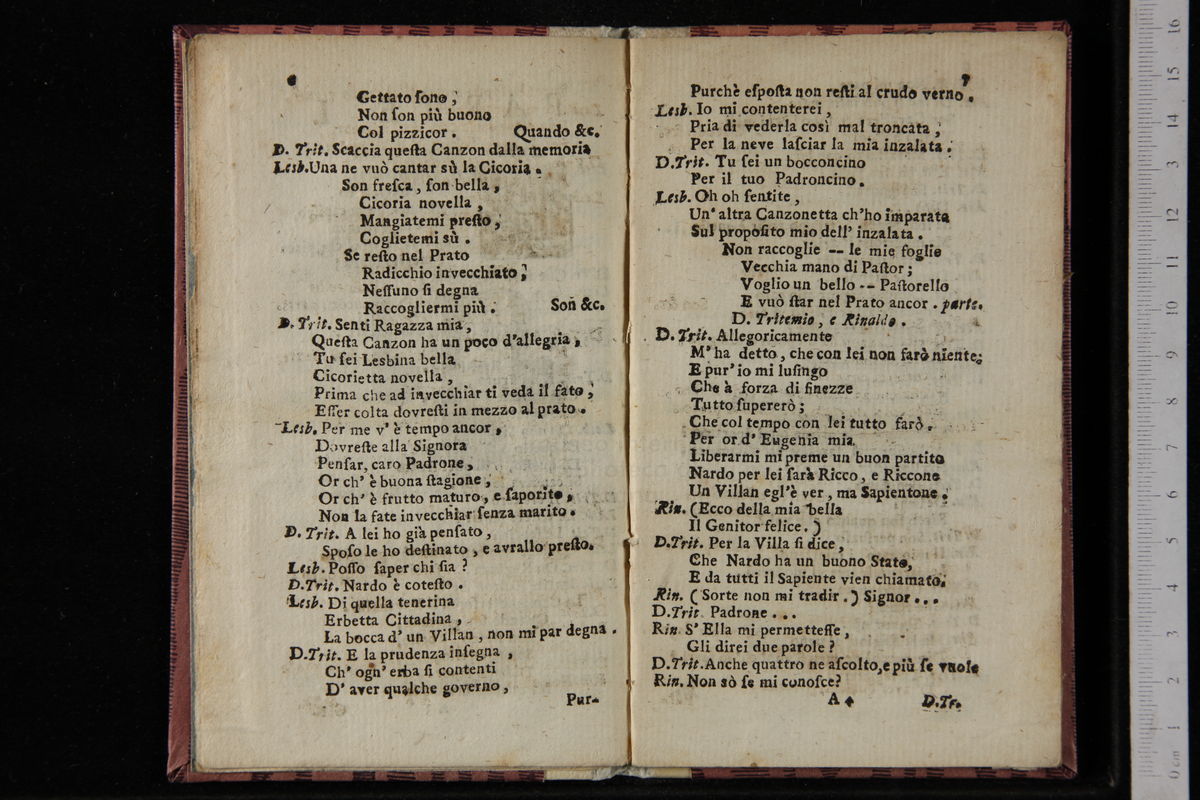 6
Gettato ſono,
Non ſon più buono
Col pizzicor. Quando &c.
D. Trit. Scaccia queſta Canzon dalla memoria
Lesb. Una ne vuò cantar sù la Cicoria.
Son freſca, ſon bella,
Cicoria novella,
Mangiatemi preſto,
Coglietemi sù.
Se reſto nel Prato
Radicchio invecchiato,
Neſſuno ſi degna
Raccogliermi più. Son &c.
D. Trit. Senti Ragazza mia,
Queſta Canzon ha un poco d'allegria,
Tu ſei Lesbina bella
Cicorietta novella,
Prima che ad invecchiar ti veda il fato,
Eſſer colta dovreſti in mezzo al prato.
Lesb. Per me v' è tempo ancor,
Dovreſte alla Signora
Penſar, caro Padrone,
Or ch' è buona ſtagione,
Or ch' è frutto maturo, e ſaporito,
Non la fate invecchiar ſenza marito.
D. Trit. A lei ho già penſato,
Spoſo le ho deſtinato, e avrallo preſto.
Lesb. Poſſo ſaper chi ſia?
D. Trit. Nardo è coteſto.
Lesb. Di quella tenerina
Erbetta Cittadina,
La bocca d' un Villan, non mi par degna.
D. Trit. E la prudenza inſegna,
Ch' ogn' erba ſi contenti
D' aver qualche governo,
Pur-
7
Purchè eſpoſta non reſti al crudo verno.
Lesb. Io mi contenterei,
Pria di vederla così mal troncata,
Per la neve laſciar la mia inzalata.
D. Trit. Tu ſei un bocconcino
Per il tuo Padroncino.
Lesb. Oh oh ſentite,
Un' altra Canzonetta ch'ho imparata
Sul propoſito mio dell' inzalata.
Non raccoglie -- le mie foglie
Vecchia mano di Paſtor;
Voglio un bello -- Paſtorello
E vuò ſtar nel Prato ancor. parte.
D. Tritemio, e Rinaldo.
D. Trit. Allegoricamente
M' ha detto, che con lei non farò niente;
E pur' io mi luſingo
Che à forza di finezze
Tutto ſupererò;
Che col tempo con lei tutto farò.
Per or d' Eugenia mia
Liberarmi mi preme un buon partito
Nardo per lei ſarà Ricco, e Riccone
Un Villan egl'è ver, ma Sapientone.
Rin. (Ecco della mia bella
Il Genitor felice.)
D. Trit. Per la Villa ſi dice,
Che Nardo ha un buono Stato,
E da tutti il Sapiente vien chiamato.
Rin. (Sorte non mi tradir.) Signor...
D. Trit. Padrone...
Rin. S' Ella mi permetteſſe,
Gli direi due parole?
D. Trit. Anche quattro ne aſcolto, e più ſe vuole
Rin. Non sò ſe mi conoſce?
A 4 D. Tr.
0 cm 1 2 3 4 5 6 7 8 9 10 11 12 13 14 15 16